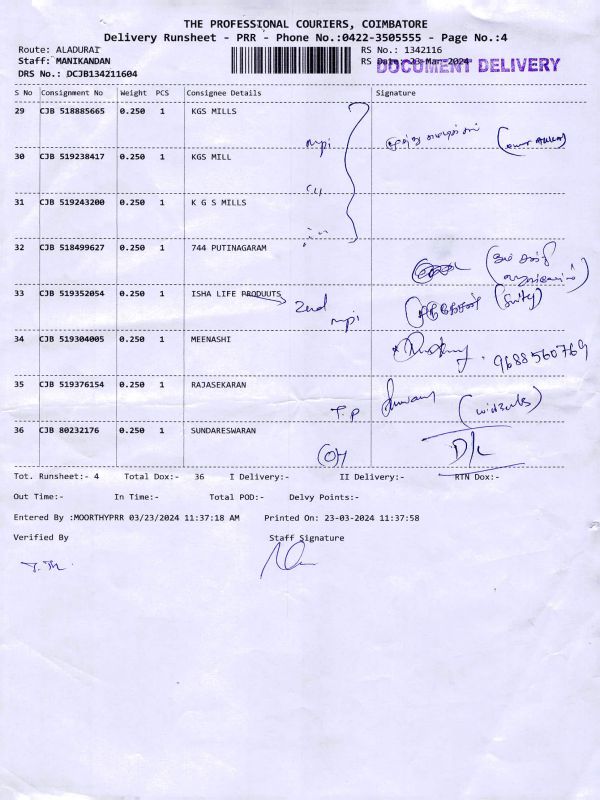 THE PROFESSIONAL COURIERS, COIMBATORE
Delivery Runsheet - PRR - Phone No.:0422-3505555 - Page No.:4
Route: ALADURAI RS No.: 1342116
Staff: MANIKANDAN RS Date: 23-Mar-2024 DOCUMENT DELIVERY
DRS No.: DCJB134211604
S No Consignment No Weight PCS Consignee Details Signature
29 CJB 518885665 0.250 1 KGS MILLS
30 CJB 519238417 0.250 1 KGS MILL
31 CJB 519243200 0.250 1 K G S MILLS
32 CJB 518499627 0.250 1 744 PUTINAGARAM
33 CJB 519352054 0.250 1 ISHA LIFE PRODUUTS
34 CJB 519304005 0.250 1 MEENASHI 9688560769
35 CJB 519376154 0.250 1 RAJASEKARAN T.P
36 CJB 80232176 0.250 1 SUNDARESWARAN D/L
Tot. Runsheet:- 4 Total Dox:- 36 I Delivery:- II Delivery:- RTN Dox:-
Out Time:- In Time:- Total POD:- Delvy Points:-
Entered By :MOORTHYPRR 03/23/2024 11:37:18 AM Printed On: 23-03-2024 11:37:58
Verified By Staff Signature